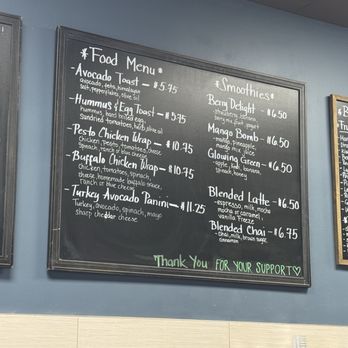 *Food Menu*
-Avocado Toast - $5.75
avocado, feta, himalaya
salt, pepperflakes, olive oil
-Hummus & Egg Toast -
hummus, hard boiled eggs,
Sundried tomatoes, herb, olive oil
-Pesto Chicken Wrap - $10.75
chicken, pesto, tomatoes, cheese
Spinach, ranch or blue cheese
-Buffalo Chicken Wrap - $10.75
chicken, tomatoes, spinach,
cheese, homemade buffalo sauce,
ranch or blue cheese
-Turkey Avocado Panini - $11.25
Turkey, avocado, spinach, mayo
sharp cheddar cheese
*Smoothies*
Berry Delight - $6.50
strawberry, banana,
berry mix, fruit, yogurt
Mango Bomb - $6.50
- mango, pineapple,
mango mix, juice
Glowing Green - $6.50
apple, banana,
spinach, honey
Blended Latte - $6.50
- espresso, milk, mocha
mocha or caramel,
vanilla Freeze
Blended Chai - $6.75
- chai, milk, brown sugar,
cinnamon
Thank You FOR YOUR SUPPORT♡